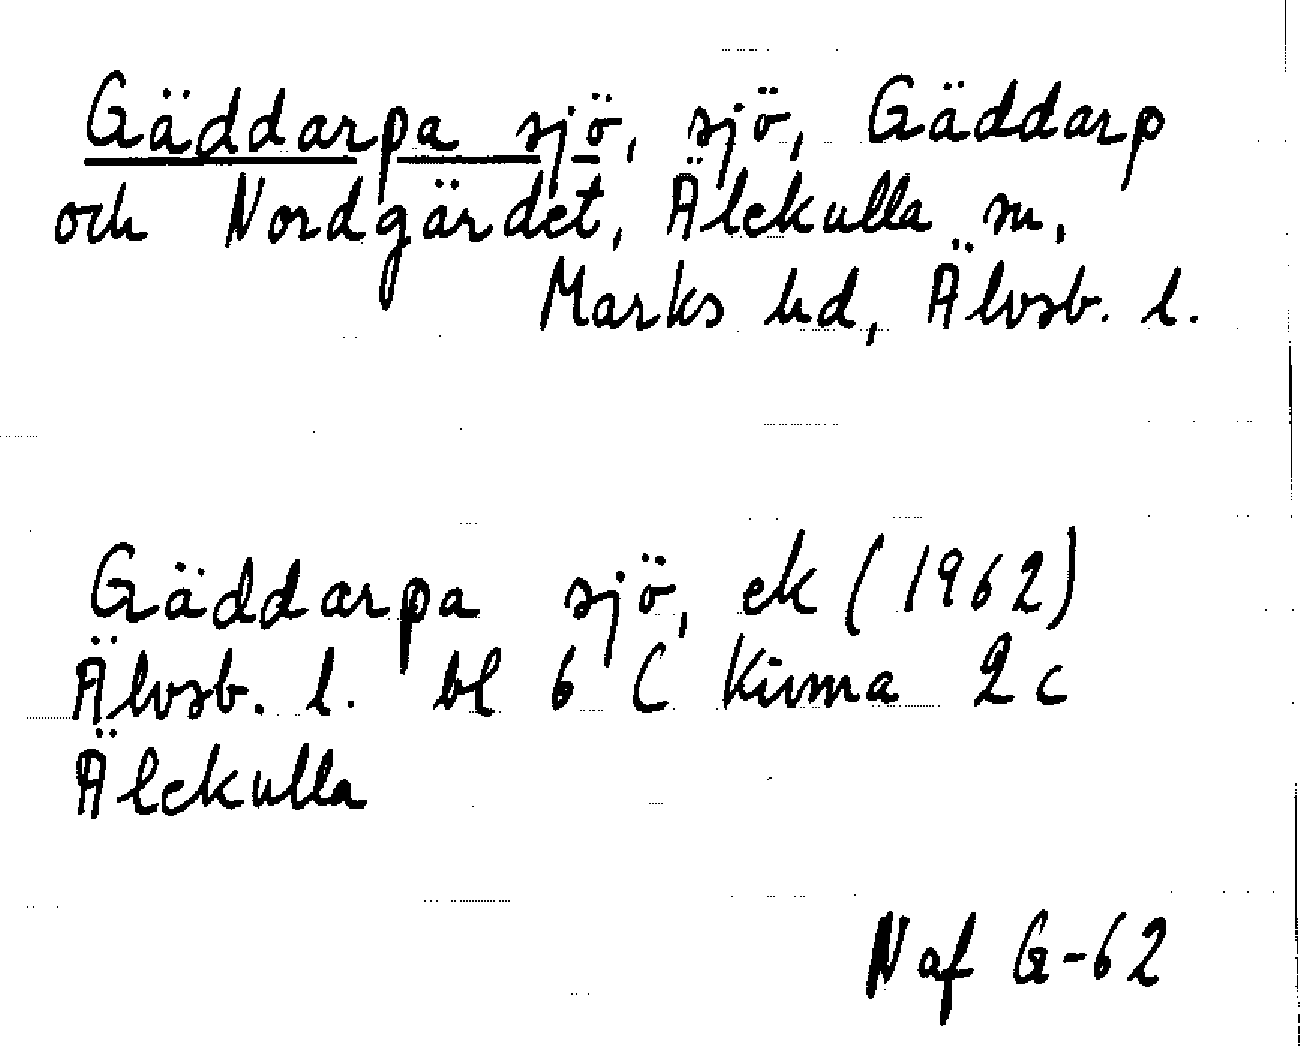 Gäddarpa sjö, sjö, Gäddarp
och Nordgärdet, Älekulla sn,
Marks hd, Älvsb. l.
Gäddarpa sjö, ek (1962)
Älvsb. l. bl 6 C Kinna 2 c
Älekulla
N af G-62